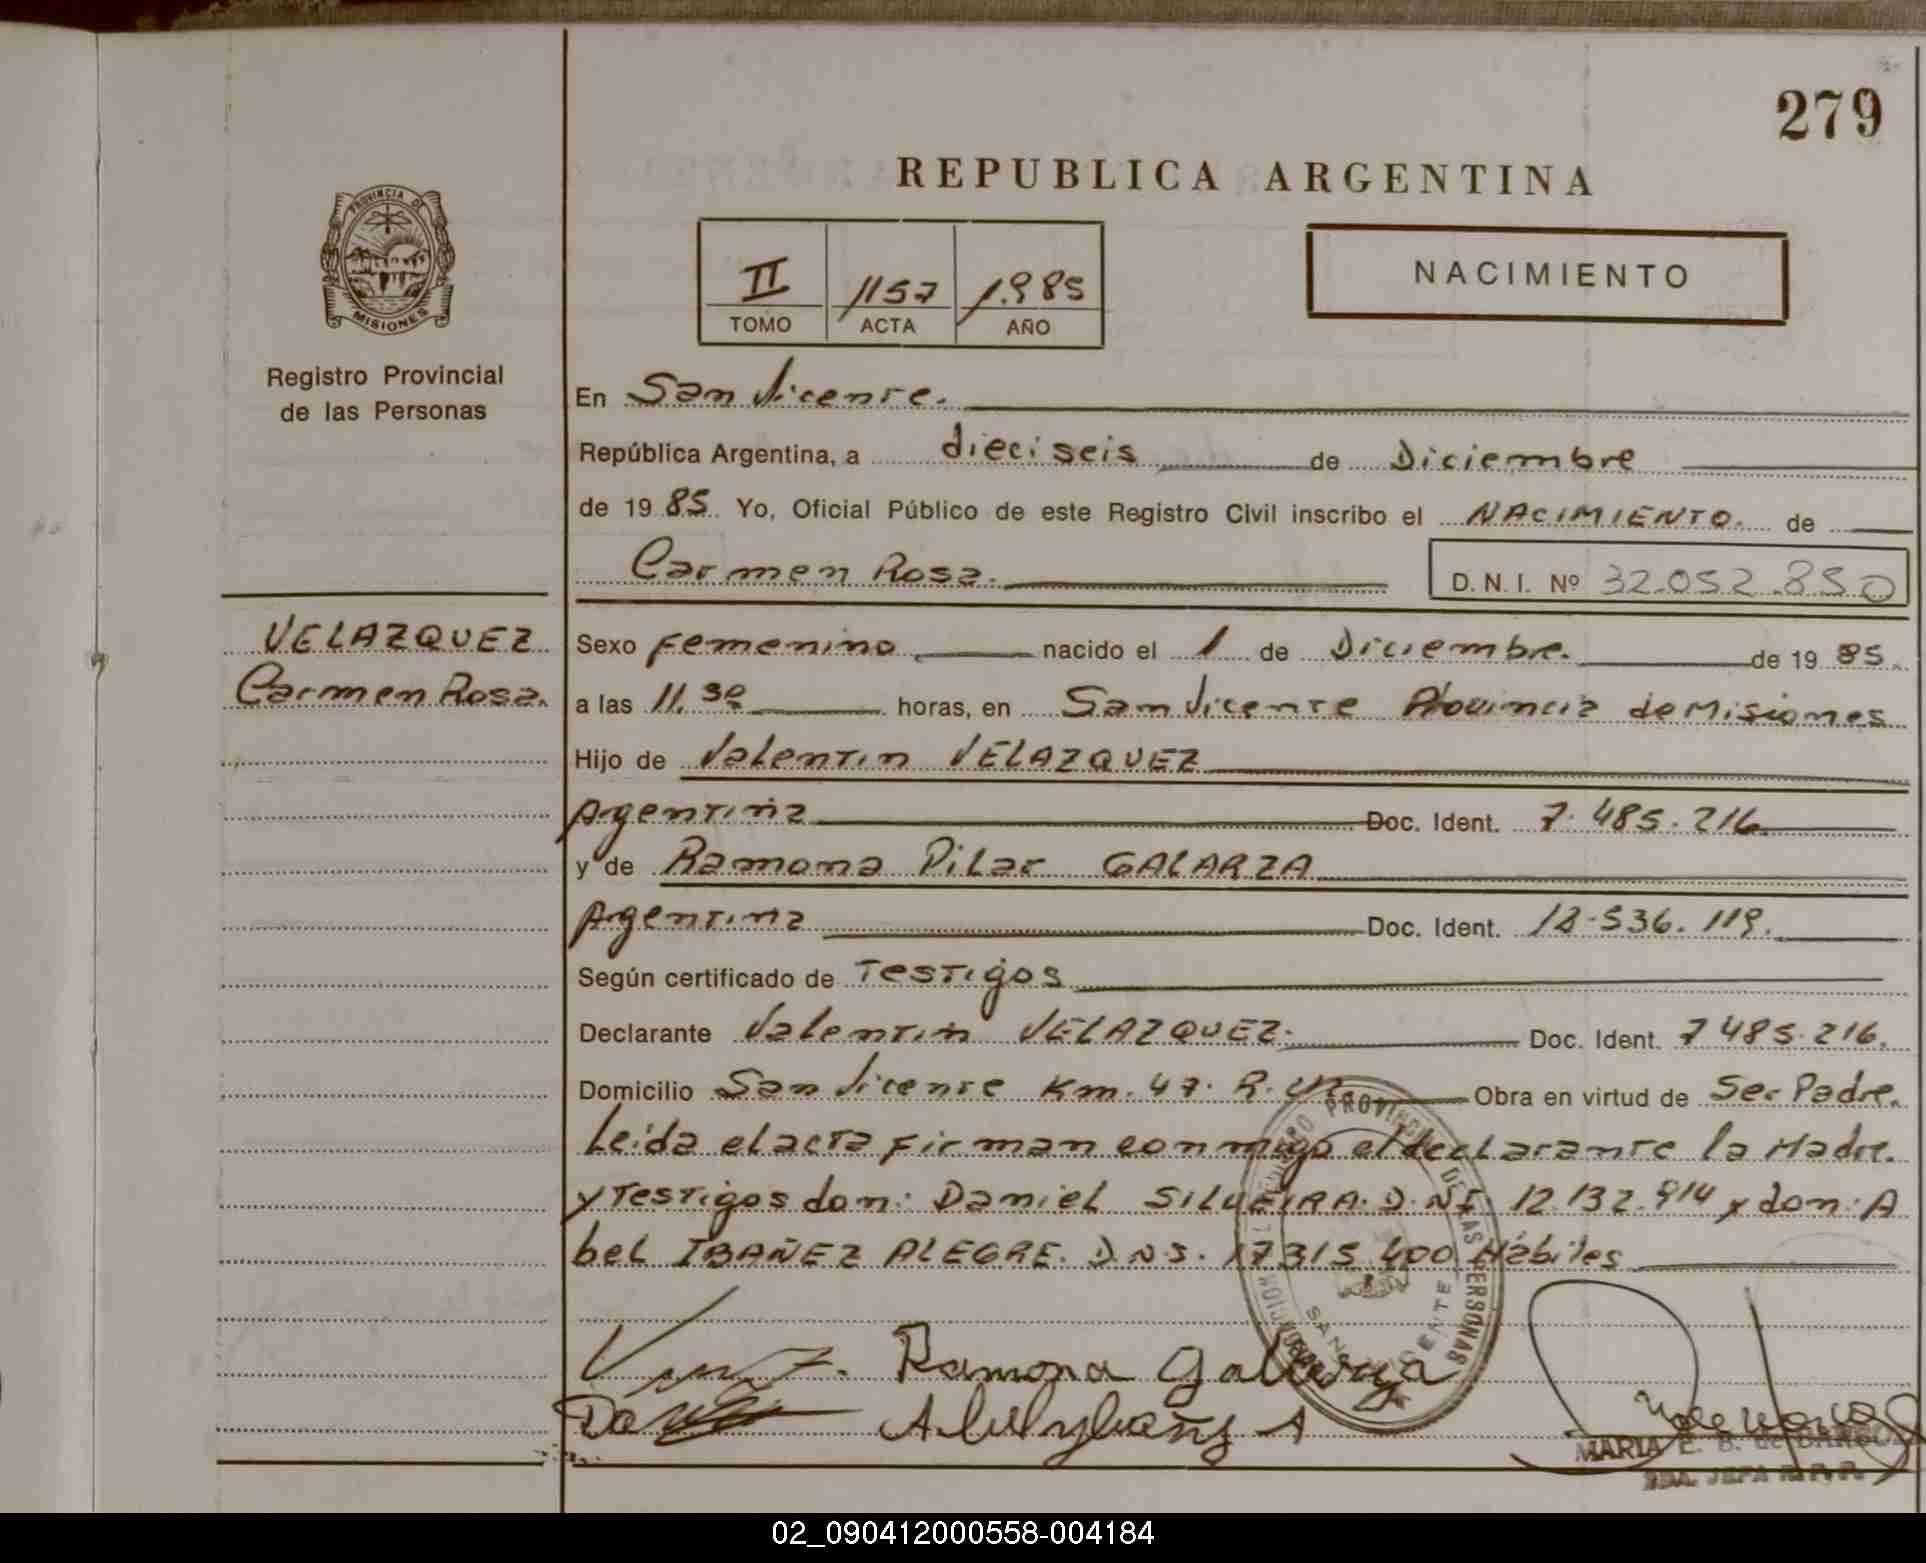 279
REPUBLICA ARGENTINA
PROVINCIA DE
MISIONES
II 1157 1.985
TOMO ACTA AÑO
NACIMIENTO
Registro Provincial
de las Personas
En San Vicente.
República Argentina, a dieciseis de Diciembre
de 19 85. Yo, Oficial Público de este Registro Civil inscribo el NACIMIENTO. de
Carmen Rosa. D. N. I. Nº 32.052.850
VELAZQUEZ
Carmen Rosa.
Sexo Femenino nacido el 1 de Diciembre. de 19 85.
a las 11.30 horas, en San Vicente Provincia de Misiones
Hijo de Valentin VELAZQUEZ
Argentina Doc. Ident. 7.485.216
y de Ramona Pilar GALARZA
Argentina Doc. Ident. 18.536.119.
Según certificado de Testigos
Declarante Valentin VELAZQUEZ. Doc. Ident. 7485.216.
Domicilio San Vicente Km. 47. R. Obra en virtud de Ser Padre.
Leida el acta firman conmigo el declarante la Madre.
y Testigos don: Daniel SILVEIRA. D.NI. 12.132.914 y don: A
bel IBAÑEZ ALEGRE. D.N.I. 17315.400 Hábiles
PROVINCIAL DE LAS PERSONAS
SAN VICENTE
Ramona Galarza
MARIA E. B. de